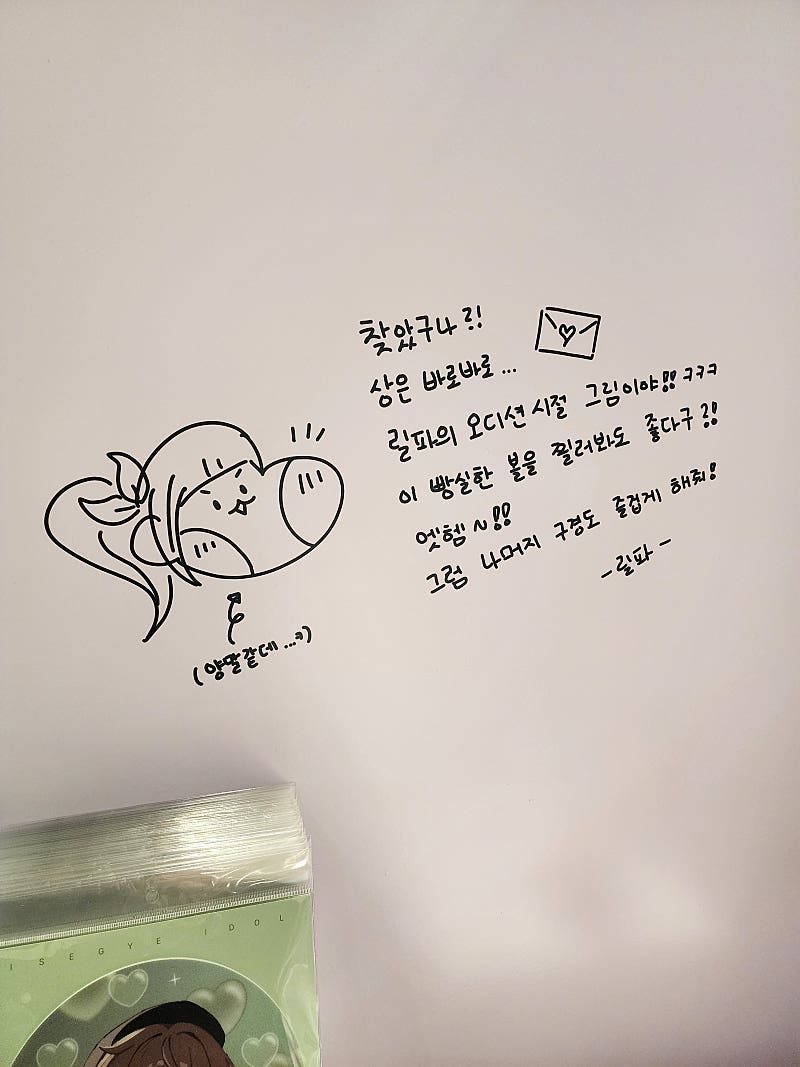 찾았구나?!
상은 바로바로...
릴파의 오디션 시절 그림이야!! ㅋㅋㅋ
이 빵실한 볼을 찔러봐도 좋다구?!
엣헴~!!
그럼 나머지 구경도 즐겁게 해줘!
-릴파-
(양말같데...ㅋ)
ISEGYE IDOL